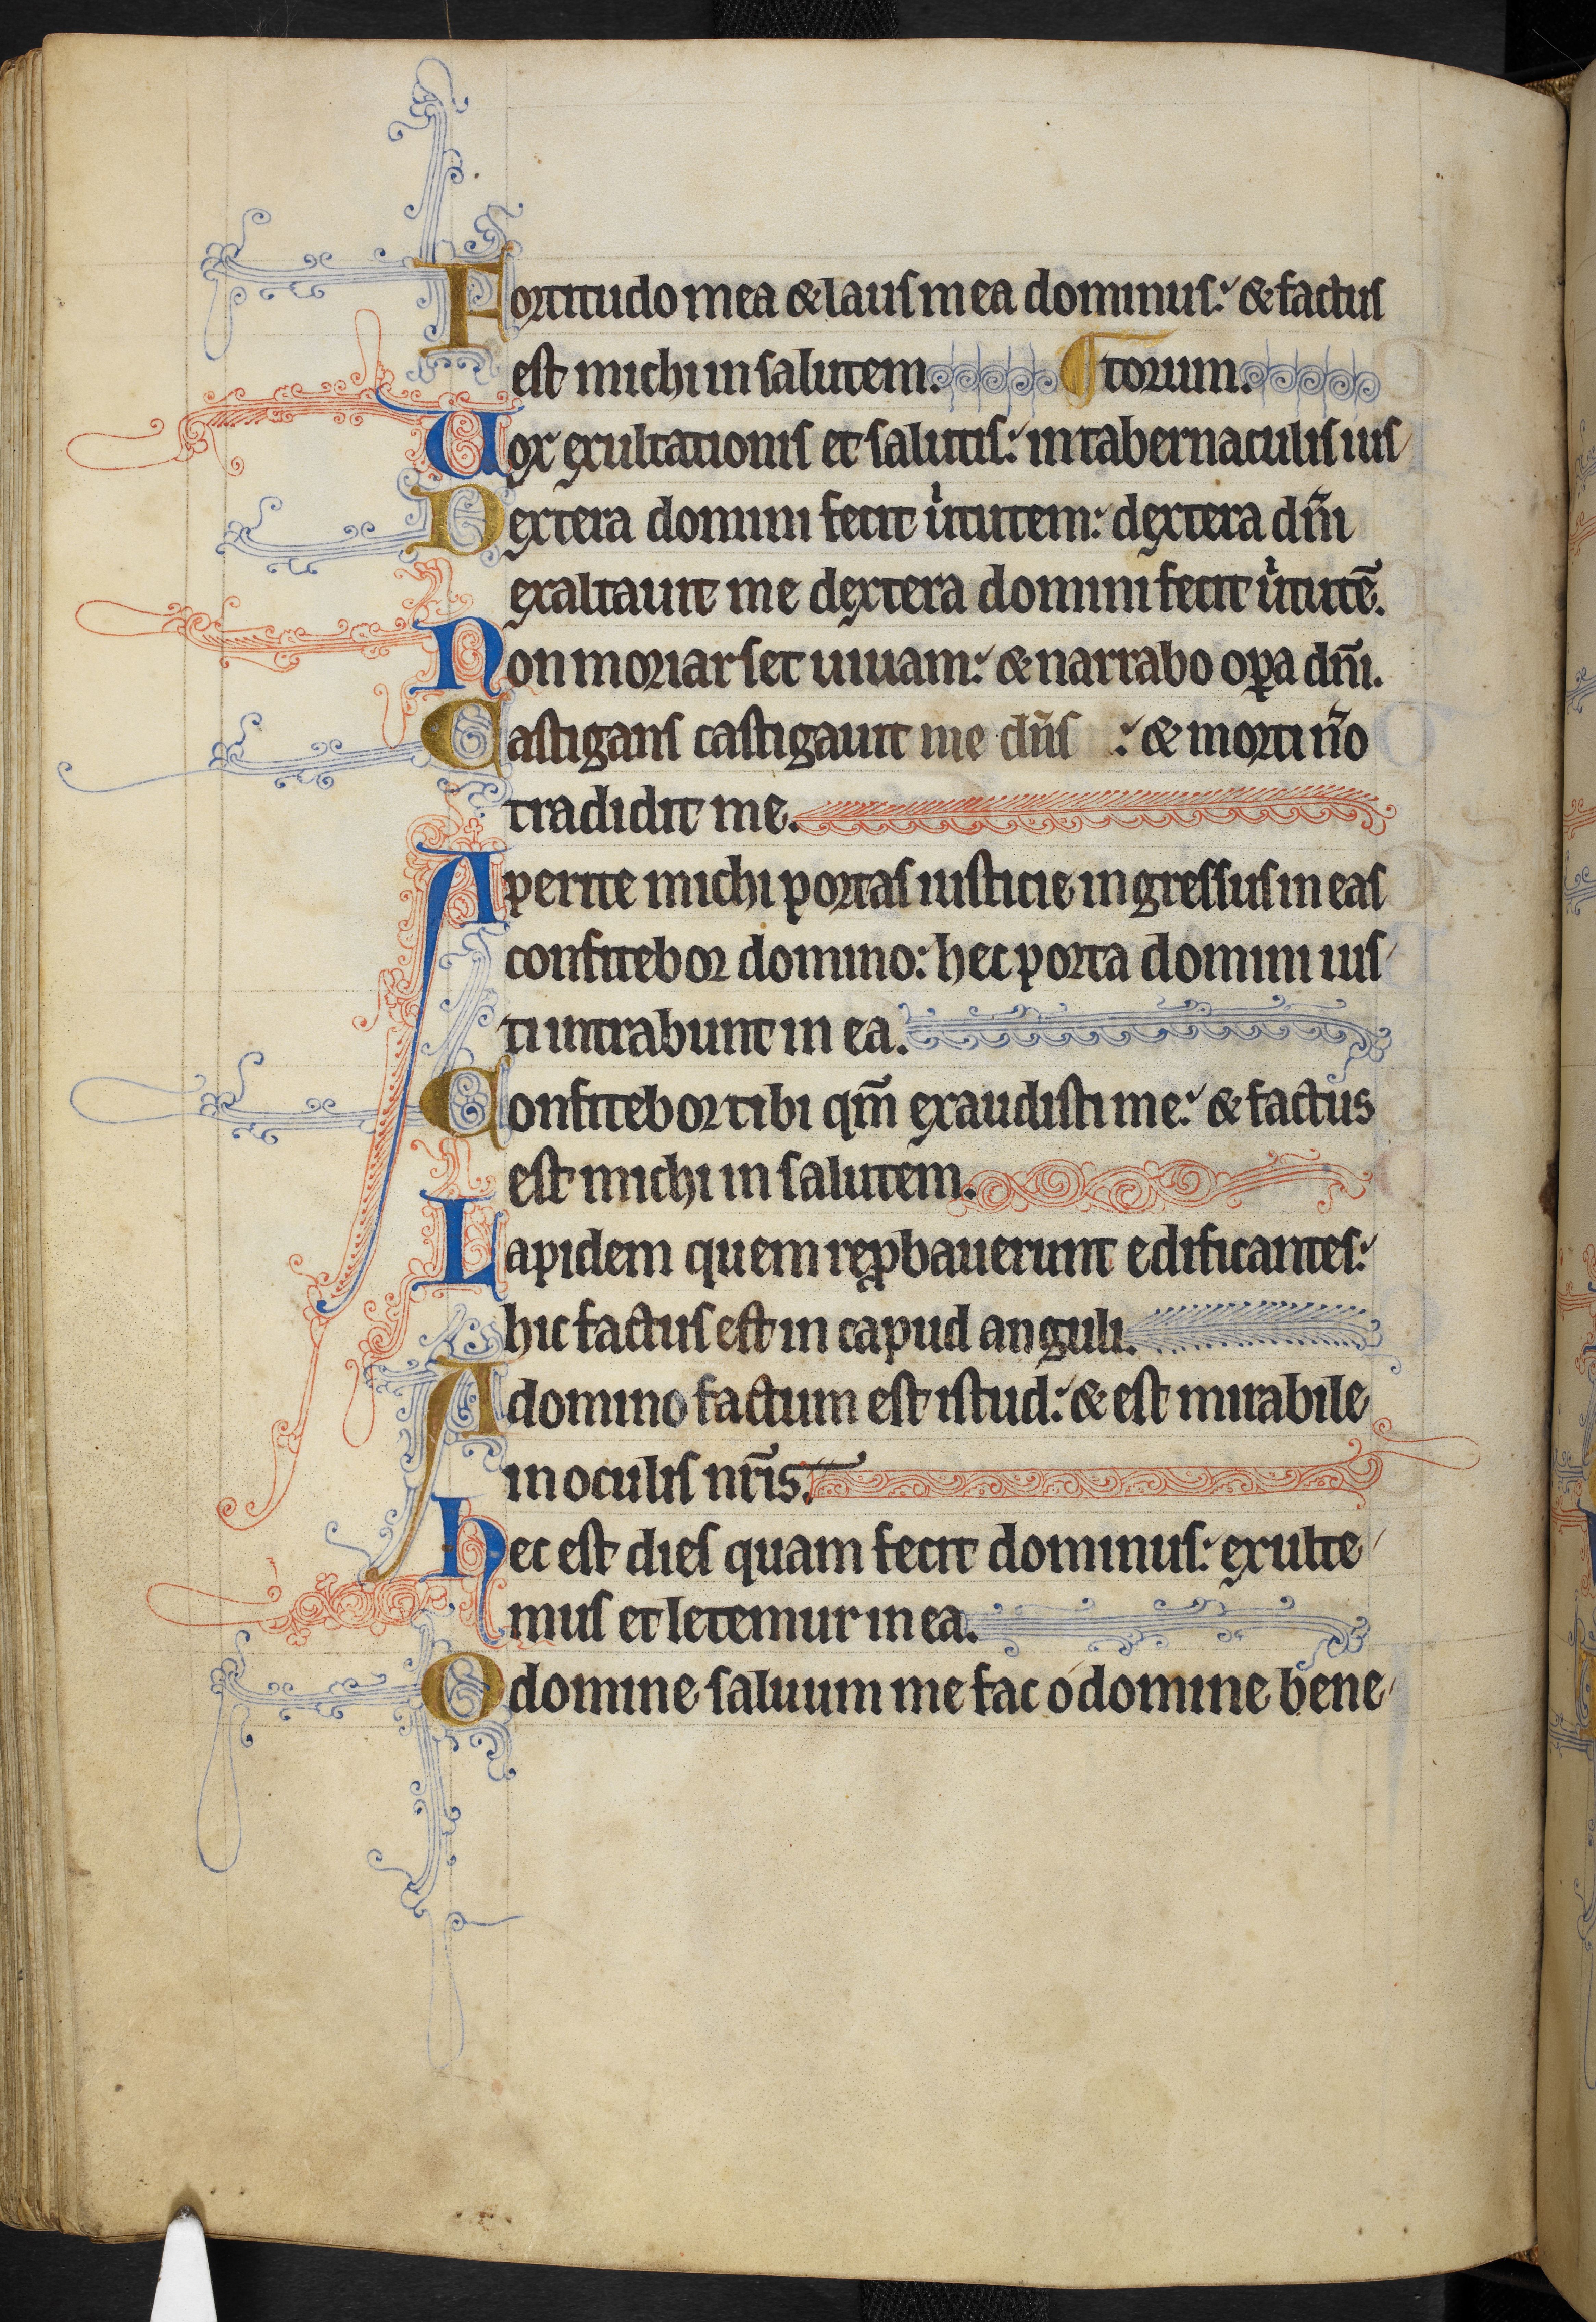 Fortitudo mea & laus mea dominus: & factus
est michi in salutem. torum.
Uox exultationis et salutis: in tabernaculis ius
Dextera domini fecit uͥtutem: dextera dn̄i
exaltauit me dextera domini fecit uͥtutē.
Non moriar set uiuam: & narrabo oꝑa dn̄i.
Castigans castigauit me dn̄s : & morti nō
tradidit me.
Aperite michi portas iusticie ingressus in eas
confitebor domino: hec porta domini ius
ti intrabunt in ea.
Confitebor tibi qm̄ exaudisti me: & factus
est michi in salutem.
Lapidem quem reꝓbauerunt edificantes:
hic factus est in capud anguli.
A domino factum est istud: & est mirabile
in oculis nr̄is.
Hec est dies quam fecit dominus: exulte
mus et letemur in ea.
O domine saluum me fac o domine bene